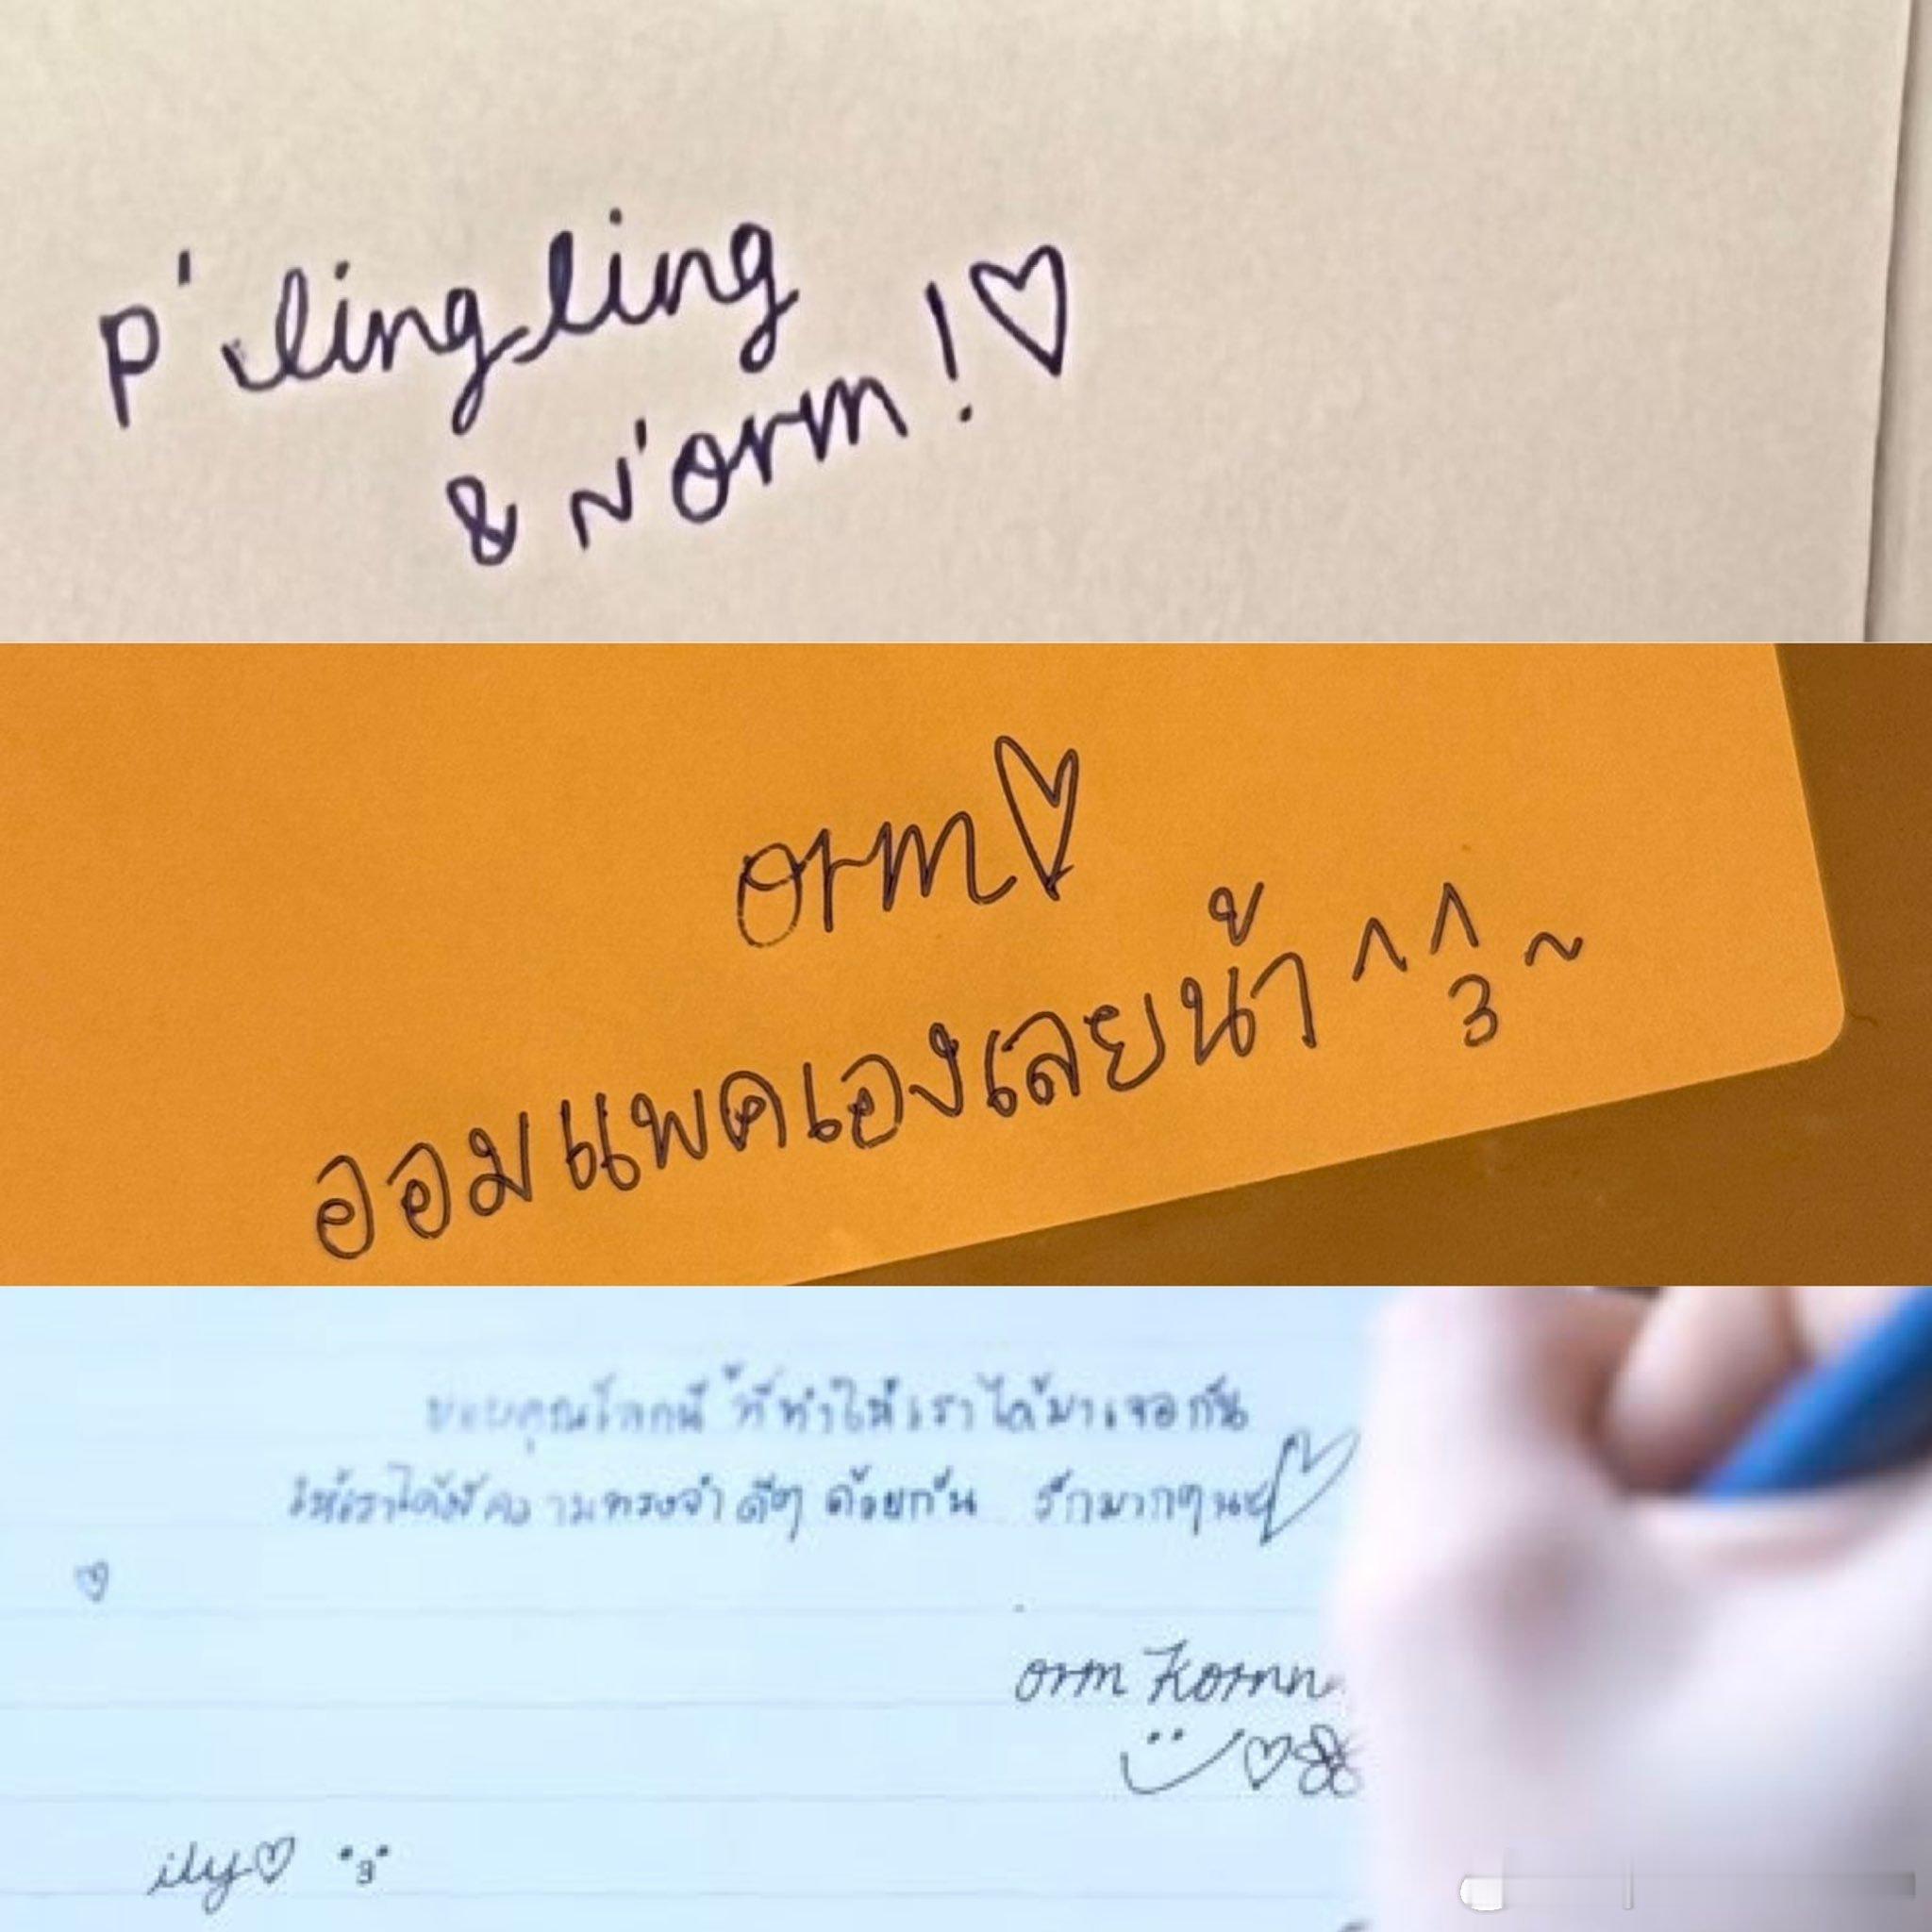 P' lingling
& N'orm!♡
orm♡
ออมแพคเองเลยน้า ^3^~
ขอบคุณโลกนี้ ที่ทำให้เราได้มาเจอกัน
ให้เราได้มีความทรงจำ ดีๆ ด้วยกัน รักมากๆนะ♡
♡
orm Kornn
ily♡